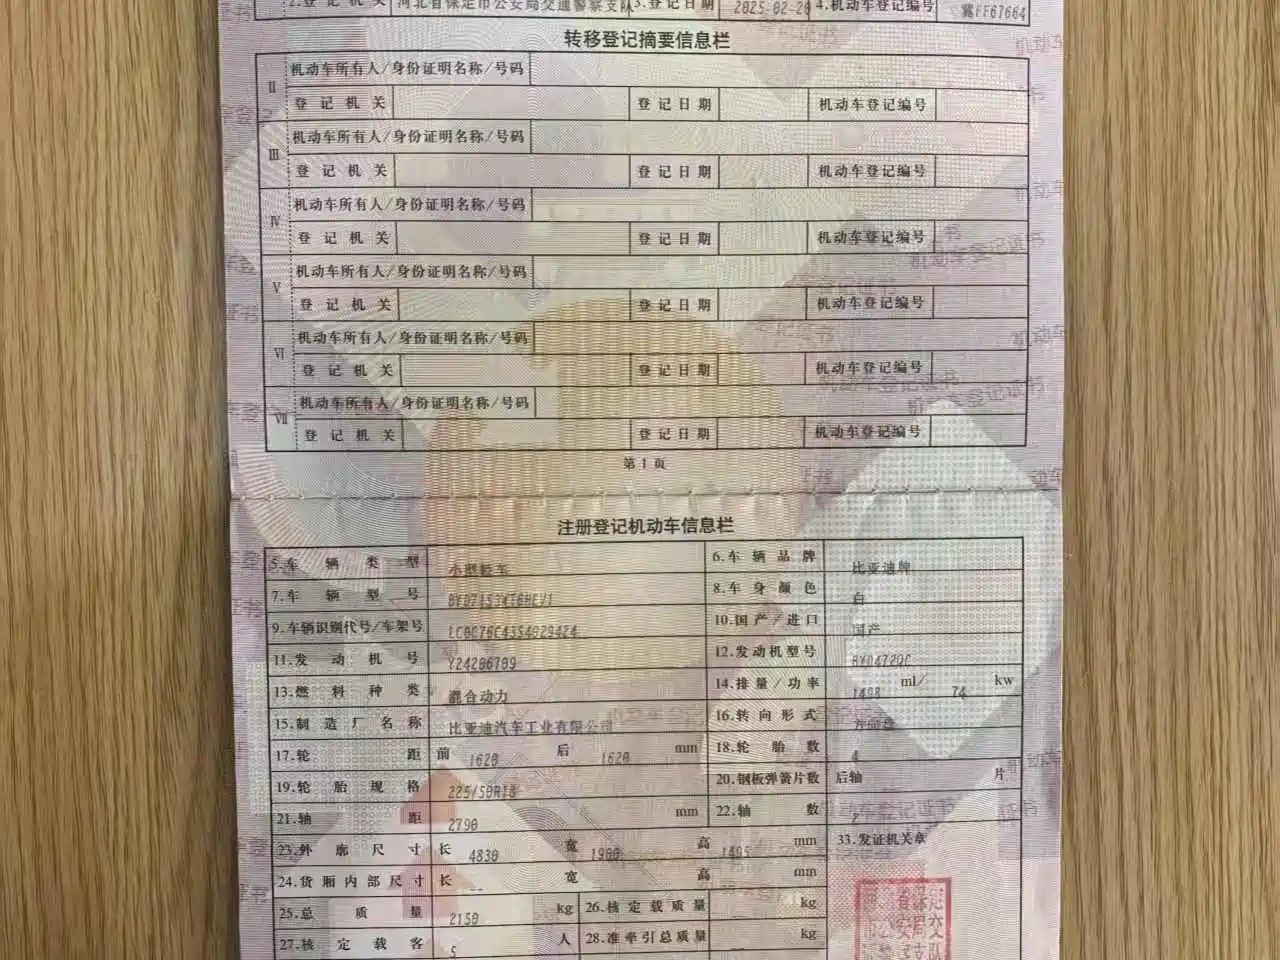 2.登记机关 河北省保定市公安局交通警察支队 3.登记日期 2025-02-20 4.机动车登记编号 冀FF67664
转移登记摘要信息栏
Ⅱ 机动车所有人/身份证明名称/号码
登记机关 登记日期 机动车登记编号
Ⅲ 机动车所有人/身份证明名称/号码
登记机关 登记日期 机动车登记编号
Ⅳ 机动车所有人/身份证明名称/号码
登记机关 登记日期 机动车登记编号
Ⅴ 机动车所有人/身份证明名称/号码
登记机关 登记日期 机动车登记编号
Ⅵ 机动车所有人/身份证明名称/号码
登记机关 登记日期 机动车登记编号
Ⅶ 机动车所有人/身份证明名称/号码
登记机关 登记日期 机动车登记编号
第1页
注册登记机动车信息栏
5.车辆类型 小型轿车 6.车辆品牌 比亚迪牌
7.车辆型号 BYD7153WT6HEV1 8.车身颜色 白
9.车辆识别代号/车架号 LC0C76C43S4029424 10.国产/进口 国产
11.发动机号 Y24206709 12.发动机型号 BYD472QC
13.燃料种类 混合动力 14.排量/功率 1498 ml/ 74 kw
15.制造厂名称 比亚迪汽车工业有限公司 16.转向形式 方向盘
17.轮距 前 1620 后 1620 mm 18.轮胎数 4
19.轮胎规格 225/50R18 20.钢板弹簧片数 后轴 片
21.轴距 2790 mm 22.轴数 2
23.外廓尺寸 长 4830 宽 1900 高 1495 mm 33.发证机关章
24.货厢内部尺寸 长 -- 宽 高 mm
25.总质量 2150 kg 26.核定载质量 kg
27.核定载客 5 人 28.准牵引总质量 -- kg